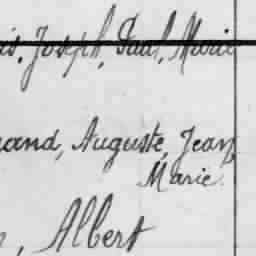 is, Joseph, Paul, Marie
and, Auguste, Jean,
Marie.
, Albert